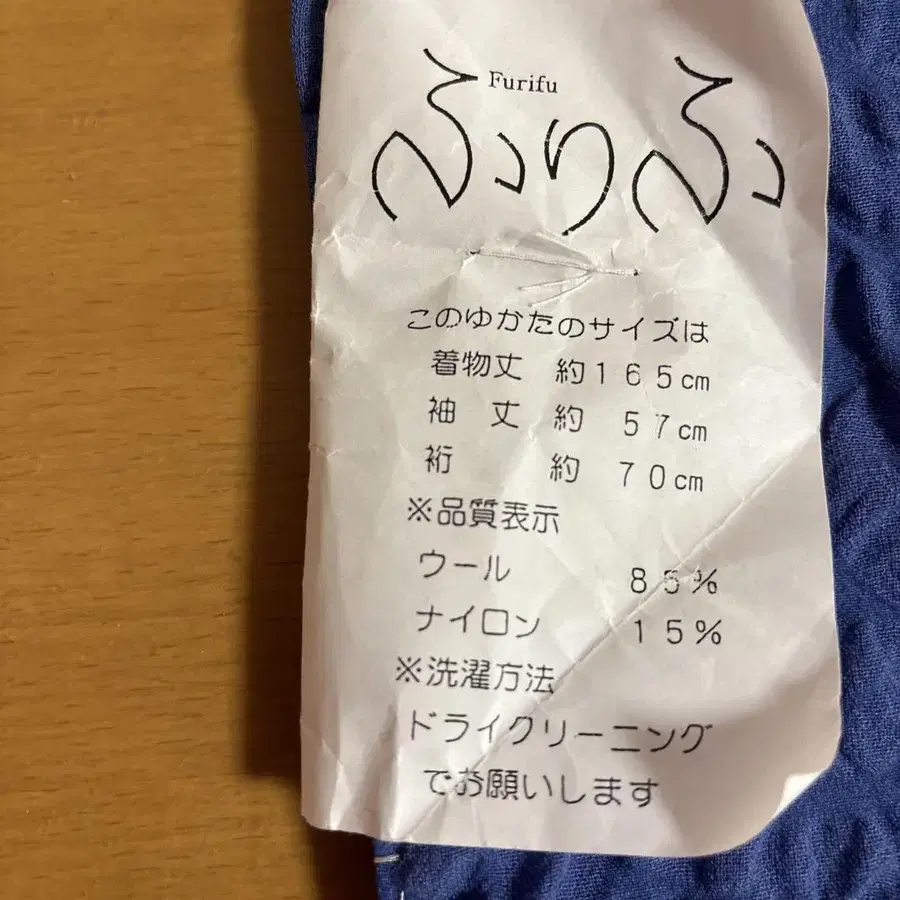 Furifu
ふりふ
このゆかたのサイズは
着物丈 約165cm
袖丈 約 57cm
裄 約 70cm
※品質表示
ウール 85%
ナイロン 15%
※洗濯方法
ドライクリーニング
でお願いします